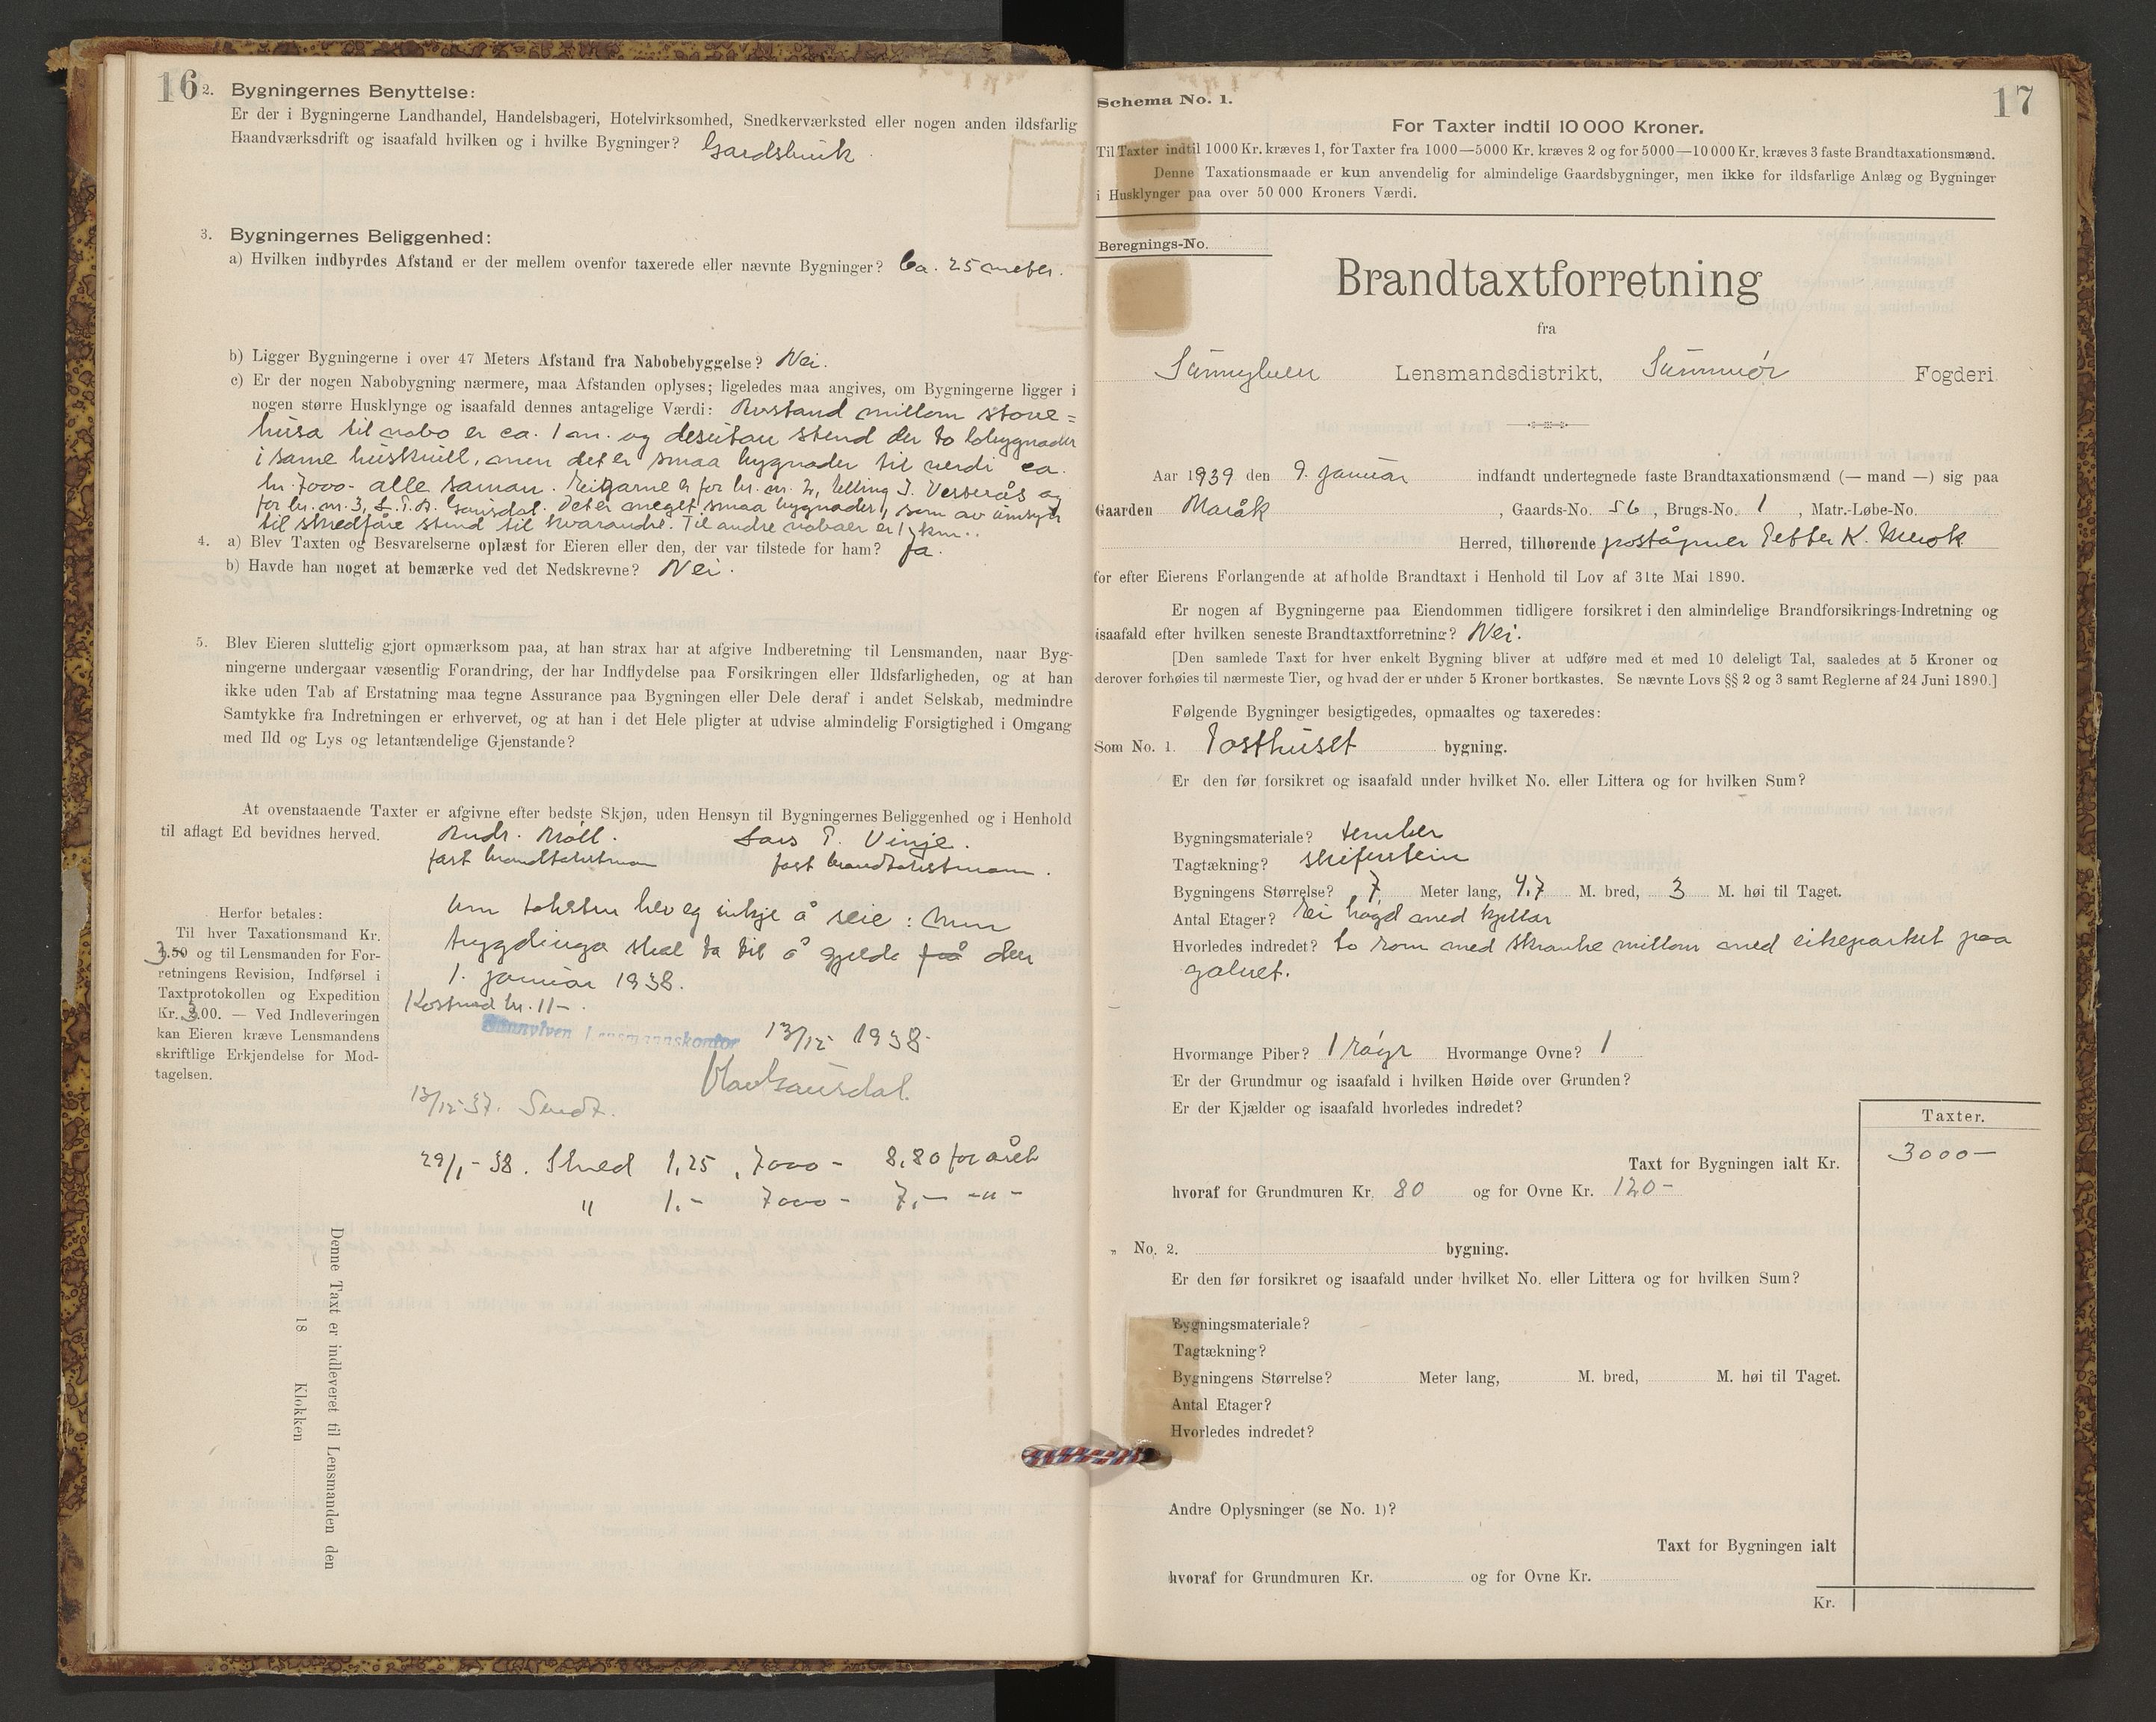 16
2. Bygningernes Benyttelse:
Er der i Bygningerne Landhandel, Handelsbageri, Hotelvirksomhed, Snedkerværksted eller nogen anden ildsfarlig
Haandværksdrift og isaafald hvilken og i hvilke Bygninger? Gardsbruk
3. Bygningernes Beliggenhed:
a) Hvilken indbyrdes Afstand er der mellem ovenfor taxerede eller nævnte Bygninger? Ca. 25 meter.
b) Ligger Bygningerne i over 47 Meters Afstand fra Nabobebyggelse? Nei.
c) Er der nogen Nabobygning nærmere, maa Afstanden oplyses; ligeledes maa angives, om Bygningerne ligger i
nogen større Husklynge og isaafald dennes antagelige Værdi: Avstand millom stove=
husa til nabo er ca. 1 m. og desutan stend der to lobygnader
i same huskull, men det er smaa bygnader til verdi ca.
kr. 7000- alle saman. Eigarne er for br. nr. 2, Elling J. Vesterås og
for br. nr. 3, L. P. A. Gausdal. Det er meget smaa bygnader, som av umsyn
til skredfåre stend til kvarandre. Til andre naboar er 1 km.
4. a) Blev Taxten og Besvarelserne oplæst for Eieren eller den, der var tilstede for ham? Ja.
b) Havde han noget at bemærke ved det Nedskrevne? Nei.
5. Blev Eieren sluttelig gjort opmærksom paa, at han strax har at afgive Indberetning til Lensmanden, naar Byg-
ningerne undergaar væsentlig Forandring, der har Indflydelse paa Forsikringen eller Ildsfarligheden, og at han
ikke uden Tab af Erstatning maa tegne Assurance paa Bygningen eller Dele deraf i andet Selskab, medmindre
Samtykke fra Indretningen er erhvervet, og at han i det Hele pligter at udvise almindelig Forsigtighed i Omgang
med Ild og Lys og letantændelige Gjenstande?
At ovenstaaende Taxter er afgivne efter bedste Skjøn, uden Hensyn til Bygningernes Beliggenhed og i Henhold
til aflagt Ed bevidnes herved. Andr. Moll. Lars P. Vinje.
fast brandtakstmann fast brandtakstmann.
Um taksten hev eg inkje å seie: Men
trygdinga skal ta til å gjelde frå den
1. januar 1938.
Kostnad kr. 11-.
Sunnylven Lensmannskontor 13/12 1938.
Olav Gausdal.
13/12-37. Sendt.
29/1-38. Skred 1,25, 7000- 8,80 for året
" 1.- 7000- 7,- -"-
Herfor betales:
Til hver Taxationsmand Kr.
3.50 og til Lensmanden for For-
retningens Revision, Indførsel i
Taxtprotokollen og Expedition
Kr. 3.00. — Ved Indleveringen
kan Eieren kræve Lensmandens
skriftlige Erkjendelse for Mod-
tagelsen.
Denne Taxt er indleveret til Lensmanden den
18 Klokken
17
Schema No. 1.
For Taxter indtil 10 000 Kroner.
Til Taxter indtil 1000 Kr. kræves 1, for Taxter fra 1000—5000 Kr. kræves 2 og for 5000—10 000 Kr. kræves 3 faste Brandtaxationsmænd.
Denne Taxationsmaade er kun anvendelig for almindelige Gaardsbygninger, men ikke for ildsfarlige Anlæg og Bygninger
i Husklynger paa over 50 000 Kroners Værdi.
Beregnings-No.
Brandtaxtforretning
fra
Sunnylven Lensmandsdistrikt, Sunnmør Fogderi.
Aar 1939 den 9. januar indfandt undertegnede faste Brandtaxationsmænd (— mand —) sig paa
Gaarden Maråk, Gaards-No. 56, Brugs-No. 1, Matr.-Løbe-No.
Herred, tilhørende poståpner Petter K. Merok
for efter Eierens Forlangende at afholde Brandtaxt i Henhold til Lov af 31te Mai 1890.
Er nogen af Bygningerne paa Eiendommen tidligere forsikret i den almindelige Brandforsikrings-Indretning og
isaafald efter hvilken seneste Brandtaxtforretning? Nei.
[Den samlede Taxt for hver enkelt Bygning bliver at udføre med et med 10 deleligt Tal, saaledes at 5 Kroner og
derover forhøies til nærmeste Tier, og hvad der er under 5 Kroner bortkastes. Se nævnte Lovs §§ 2 og 3 samt Reglerne af 24 Juni 1890.]
Følgende Bygninger besigtigedes, opmaaltes og taxeredes:
Som No. 1. Posthuset bygning.
Er den før forsikret og isaafald under hvilket No. eller Littera og for hvilken Sum?
Bygningsmateriale? tember
Tagtækning? skiferstein
Bygningens Størrelse? 7 Meter lang, 4,7 M. bred, 3 M. høi til Taget.
Antal Etager? Ei høgd med kjellar
Hvorledes indredet? to rom med skranke millom med eikeparket paa
golvet.
Hvormange Piber? 1 røyr Hvormange Ovne? 1
Er der Grundmur og isaafald i hvilken Høide over Grunden?
Er der Kjælder og isaafald hvorledes indredet?
Taxter.
Taxt for Bygningen ialt Kr. 3000-
hvoraf for Grundmuren Kr. 80 og for Ovne Kr. 120-
„ No. 2. bygning.
Er den før forsikret og isaafald under hvilket No. eller Littera og for hvilken Sum?
Bygningsmateriale?
Tagtækning?
Bygningens Størrelse? Meter lang, M. bred, M. høi til Taget.
Antal Etager?
Hvorledes indredet?
Andre Oplysninger (se No. 1)?
Taxt for Bygningen ialt
hvoraf for Grundmuren Kr. og for Ovne Kr.
Kr.